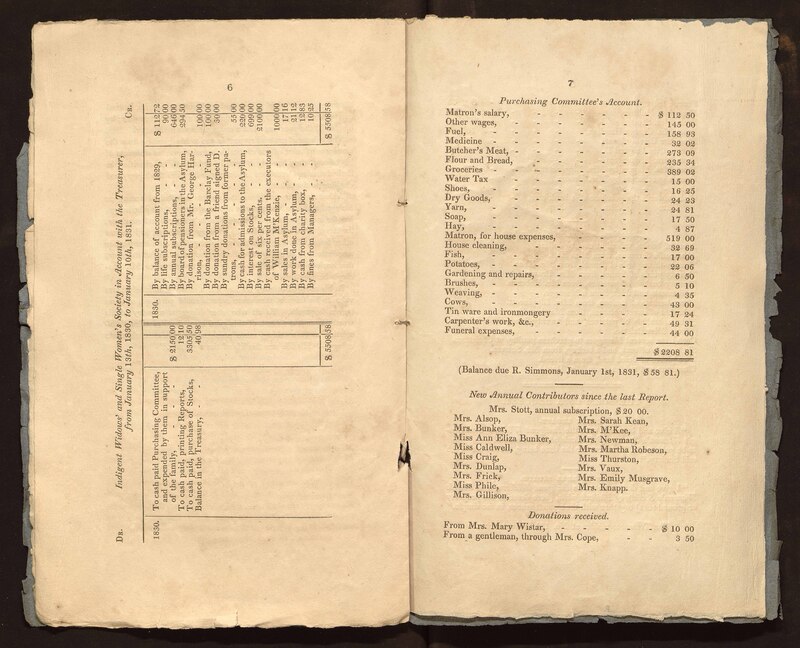 6
DR.
Indigent Widows' and Single Women's Society in Account with the Treasurer,
from January 13th, 1830, to January 10th, 1831.
CR.
1830. To cash paid Purchasing Committee,
and expended by them in support
of the family, - - - $ 2150 00
To cash paid, printing Reports, 12 10
To cash paid, purchase of Stocks, 3305 50
Balance in the Treasury, - - 40 98
$ 5508 58
1830. By balance of account from 1829, $ 112 72
By life subscriptions, - - 90 00
By annual subscriptions, - - 646 00
By board of pensioners in the Asylum, 294 50
By donation from Mr. George Har-
rison, - - - - 100 00
By donation from the Barclay Fund, 100 00
By donation from a friend signed D. 50 00
By sundry donations from former pa-
trons, - - - - 55 00
By cash for admissions to the Asylum, 220 00
By interest on Stocks, - - 679 00
By sale of six per cents. - - 2100 00
By cash received from the executors
of William M'Kenzie, - - 1000 00
By sales in Asylum, - - 17 16
By work done in Asylum, - - 21 12
By cash from charity box, - - 12 83
By fines from Managers, - - 10 25
$ 5508 58
7
Purchasing Committee's Account.
Matron's salary, - - - - - - $ 112 50
Other wages, - - - - - - 145 00
Fuel, - - - - - - 158 93
Medicine - - - - - - 32 02
Butcher's Meat, - - - - - - 273 09
Flour and Bread, - - - - - - 235 34
Groceries - - - - - - 389 02
Water Tax - - - - - - 15 00
Shoes, - - - - - - 16 25
Dry Goods, - - - - - - 24 23
Yarn, - - - - - - 24 81
Soap, - - - - - - 17 50
Hay, - - - - - - 4 87
Matron, for house expenses, - - - - 519 00
House cleaning, - - - - - - 32 69
Fish, - - - - - - 17 00
Potatoes, - - - - - - 22 06
Gardening and repairs, - - - - - 6 50
Brushes, - - - - - - 5 10
Weaving, - - - - - - 4 35
Cows, - - - - - - 43 00
Tin ware and ironmongery - - - - 17 24
Carpenter's work, &c., - - - - - 49 31
Funeral expenses, - - - - - 44 00
$ 2208 81
(Balance due R. Simmons, January 1st, 1831, $ 58 81.)
New Annual Contributors since the last Report.
Mrs. Stott, annual subscription, $ 20 00.
Mrs. Alsop,
Mrs. Bunker,
Miss Ann Eliza Bunker,
Miss Caldwell,
Miss Craig,
Mrs. Dunlap,
Mrs. Frick,
Miss Phile,
Mrs. Gillison,
Mrs. Sarah Kean,
Mrs. M'Kee,
Mrs. Newman,
Mrs. Martha Robeson,
Miss Thurston,
Mrs. Vaux,
Mrs. Emily Musgrave,
Mrs. Knapp.
Donations received.
From Mrs. Mary Wistar, - - - - - $ 10 00
From a gentleman, through Mrs. Cope, - - 3 50